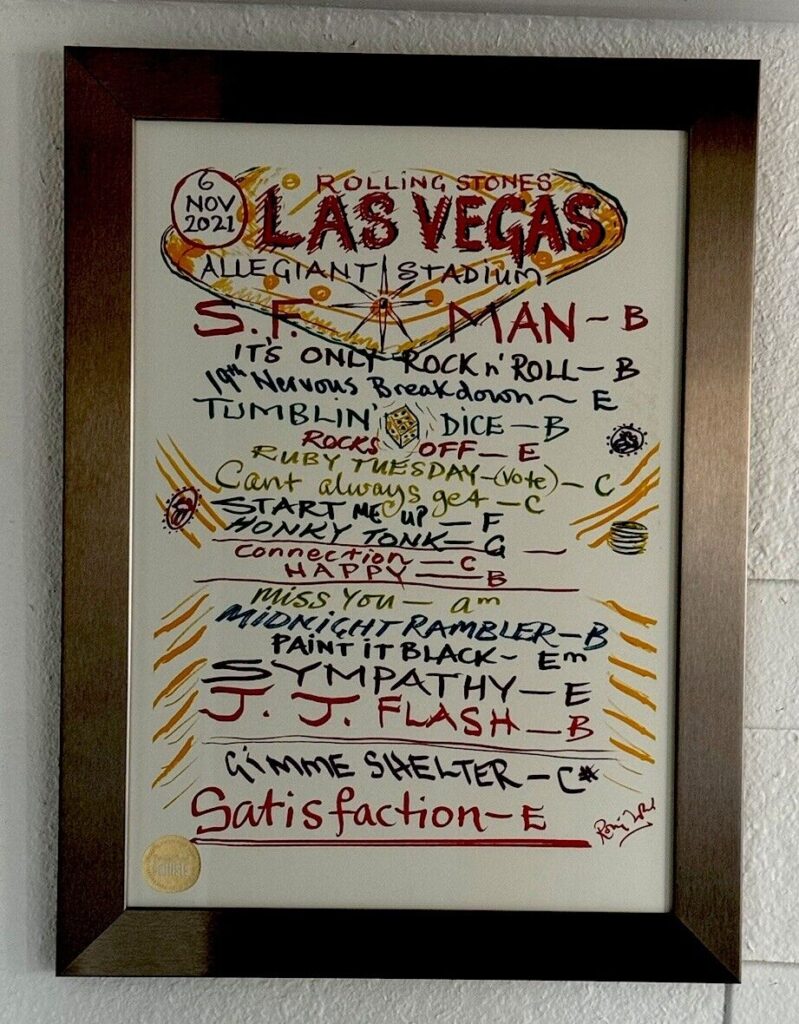 6
NOV
2021
ROLLING STONES
LAS VEGAS
ALLEGIANT STADIUM
S.F. MAN - B
IT'S ONLY ROCK n' ROLL - B
19th Nervous Breakdown ~ E
TUMBLIN' DICE - B
ROCKS OFF - E
RUBY TUESDAY - (Vote) - C
Cant always get - C
START ME UP - F
HONKY TONK - G -
Connection - C
HAPPY - B
MISS YOU - am
MIDNIGHT RAMBLER - B
PAINT IT BLACK - Em
SYMPATHY - E
J. J. FLASH - B
GIMME SHELTER - C#
Satisfaction - E